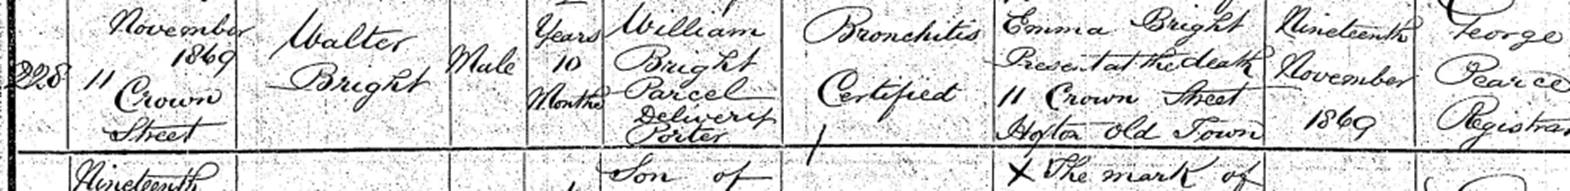 228
November
1869
11
Crown
Street
Walter
Bright
Male
Years
10
Months
William
Bright
Parcel
Delivery
Porter
Bronchitis
Certified
Emma Bright
Present at the death
11 Crown Street
Hoxton Old Town
Nineteenth
November
1869
George
Pearce
Registrar
Nineteenth
Son of
X The mark of